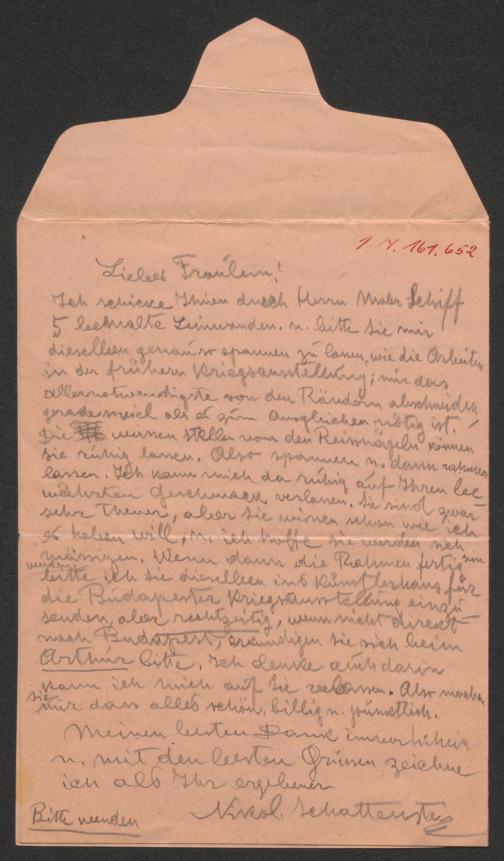 I. N. 161.652
Liebes Fräulein!
Ich schicke Ihnen durch Herrn Maler Schiff
5 bemalte Leinwanden. u. bitte Sie mir
dieselben genau so spannen zu lassen, wie die Arbeiten
in der frühern Kriegsausstellung; nur das
allernotwendigste von den Rändern abschneiden
geradesoviel als es zum Ausgleichen nötig ist.
Die weissen stellen von den Reissnägeln können
sie ruhig lassen. Also spannen u. dann rahmen
lassen. Ich kann mich da ruhig auf Ihren be-
währten Geschmack verlassen. Sie sind zwar
sehr Theuer, aber Sie wissen schon wie ich
es haben will, u. ich hoffe sie werden sich
mässigen. Wenn dann die Rahmen fertig sein
werden bitte ich sie dieselben ins Künstlerhaus für
die Budapester Kriegsausstellung einzu-
senden, aber rechtzeitig, wenn nicht direkt
nach Budapest, erkundigen sie sich beim
Arthur bitte, Ich denke auch darin
kann ich mich auf Sie verlassen. Also machen
sie mir dass alles schön, billig u. pünktlich.
Meinen besten Dank im
u. mit den besten Grüssen zeichne
ich als Ihr ergebener
Nikol. Schattenstein
Bitte wenden